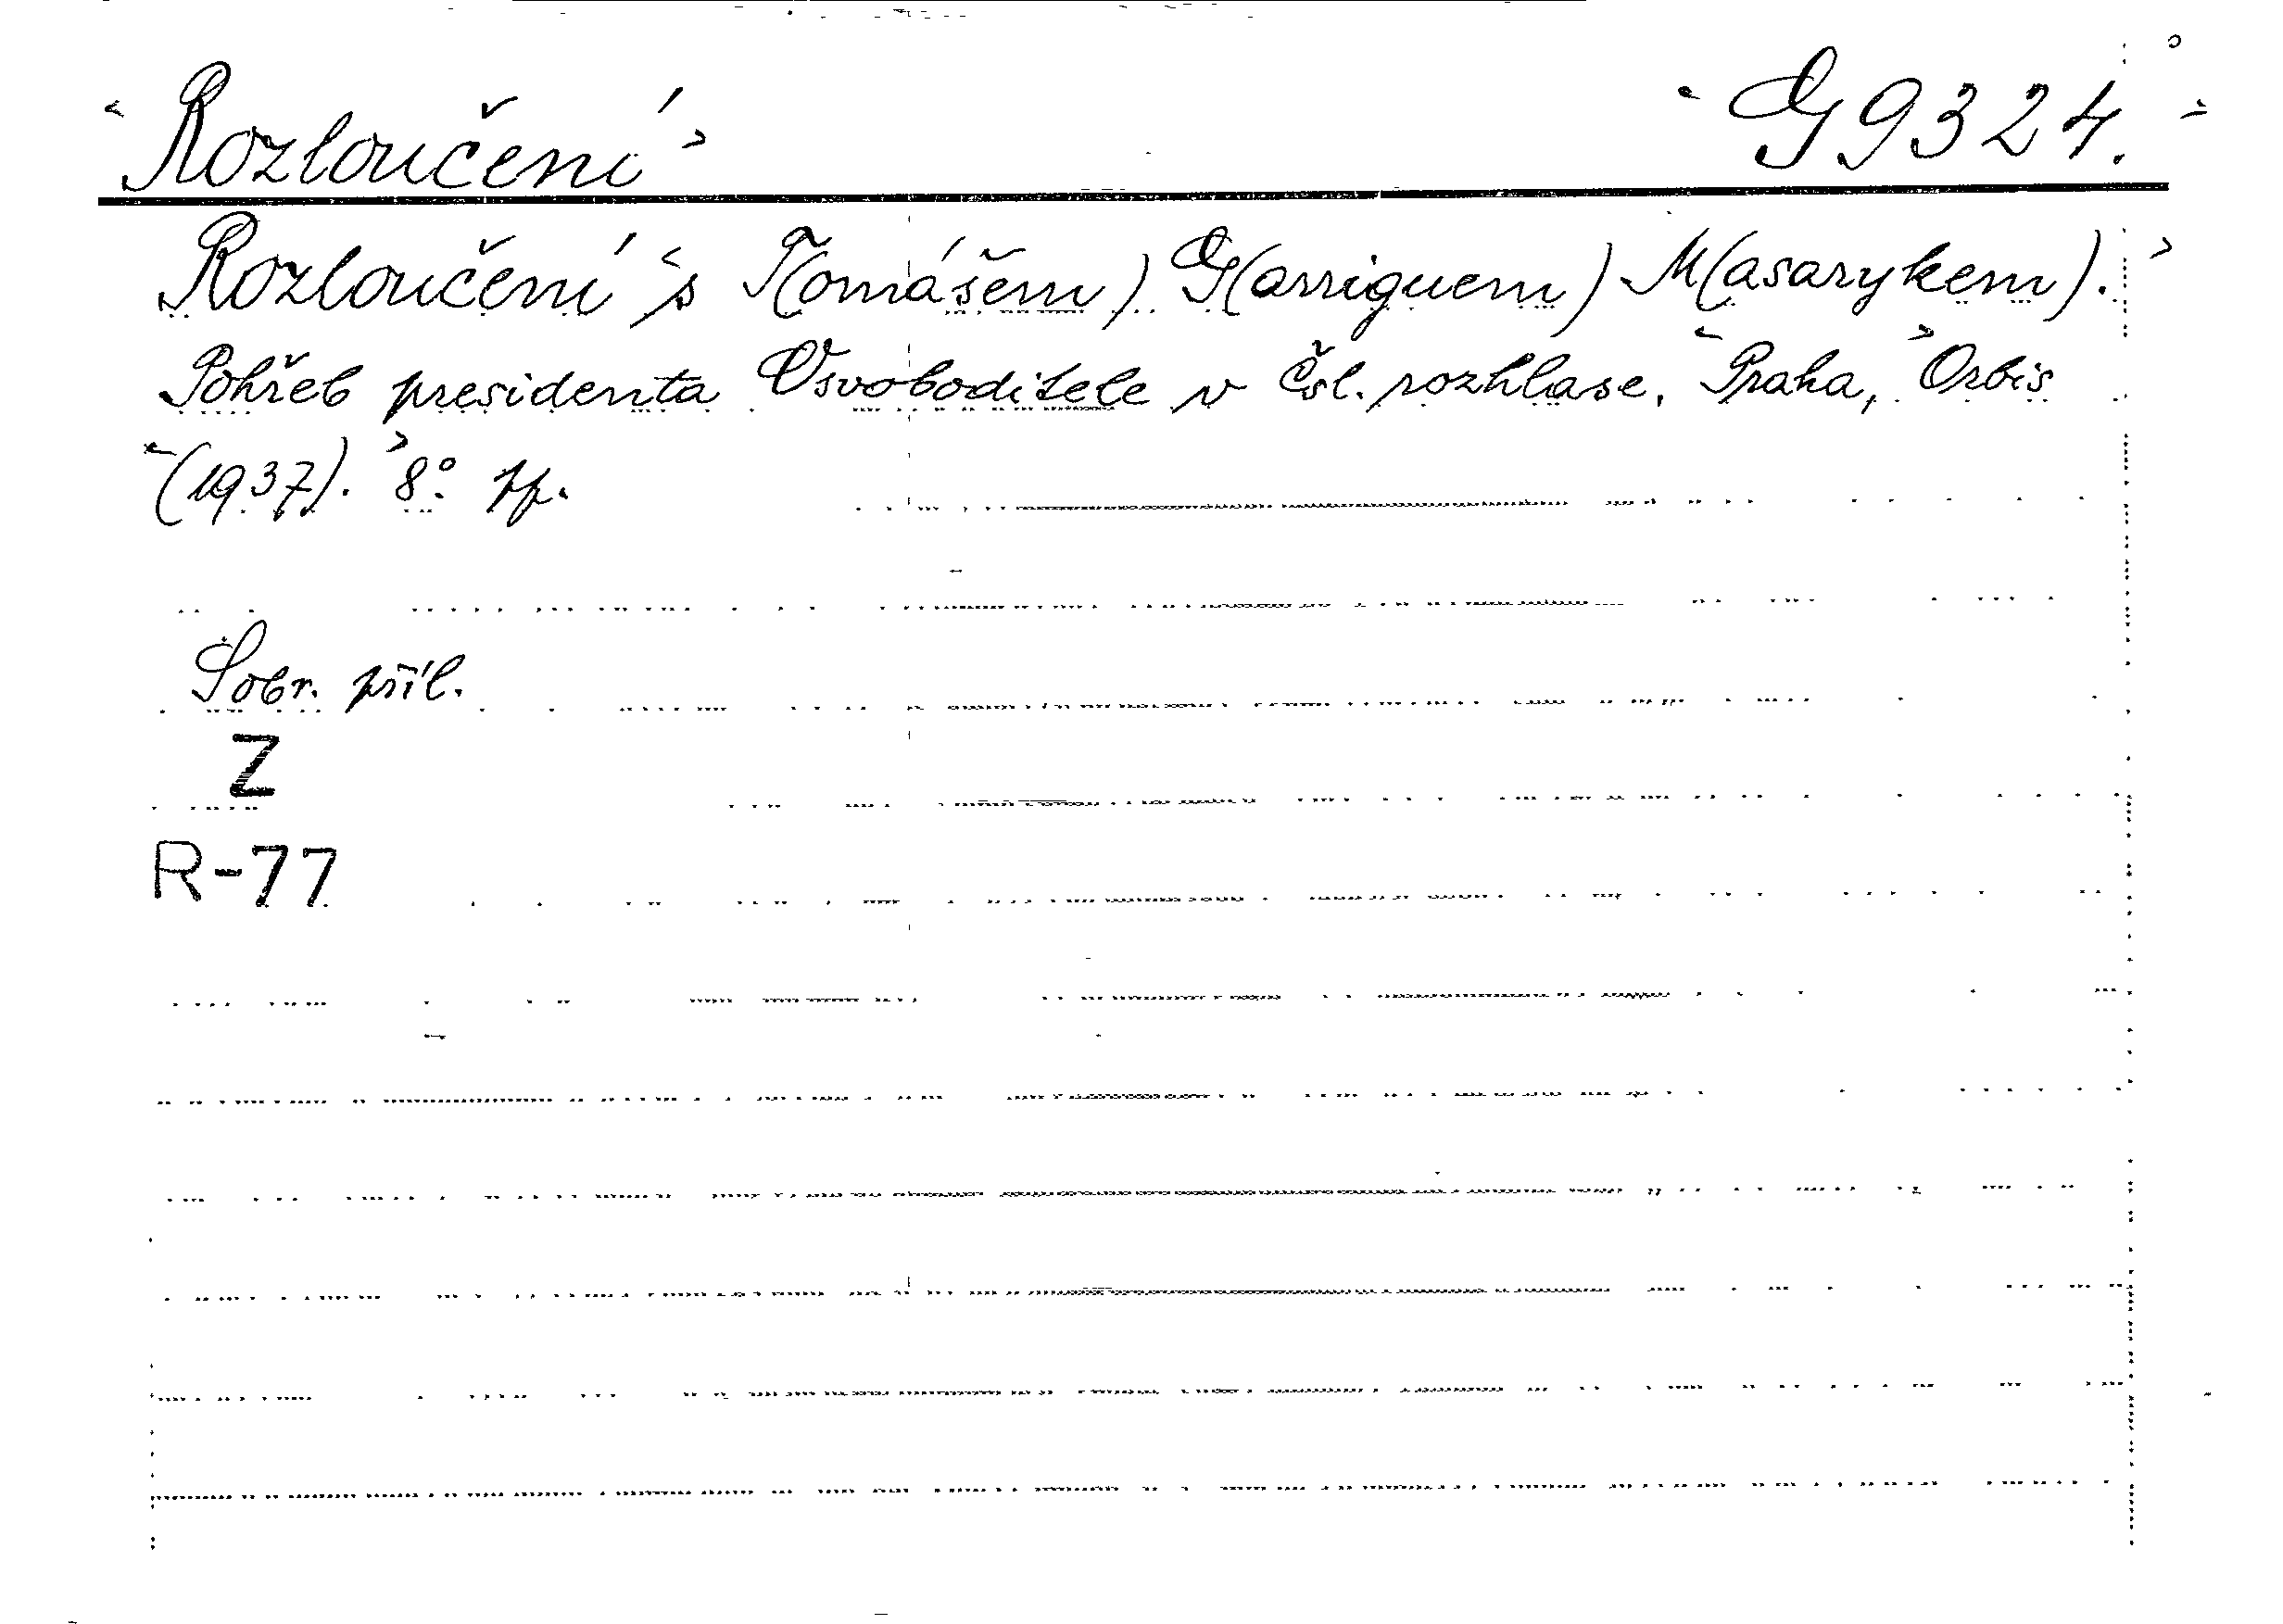 Rozloučení G 9324.
Rozloučení s T(omášem) G(arriguem) M(asarykem).
Pohřeb presidenta Osvoboditele v Čsl. rozhlase. Praha, Orbis
(1937). 8°.
S obr. příl.
Z
R-77